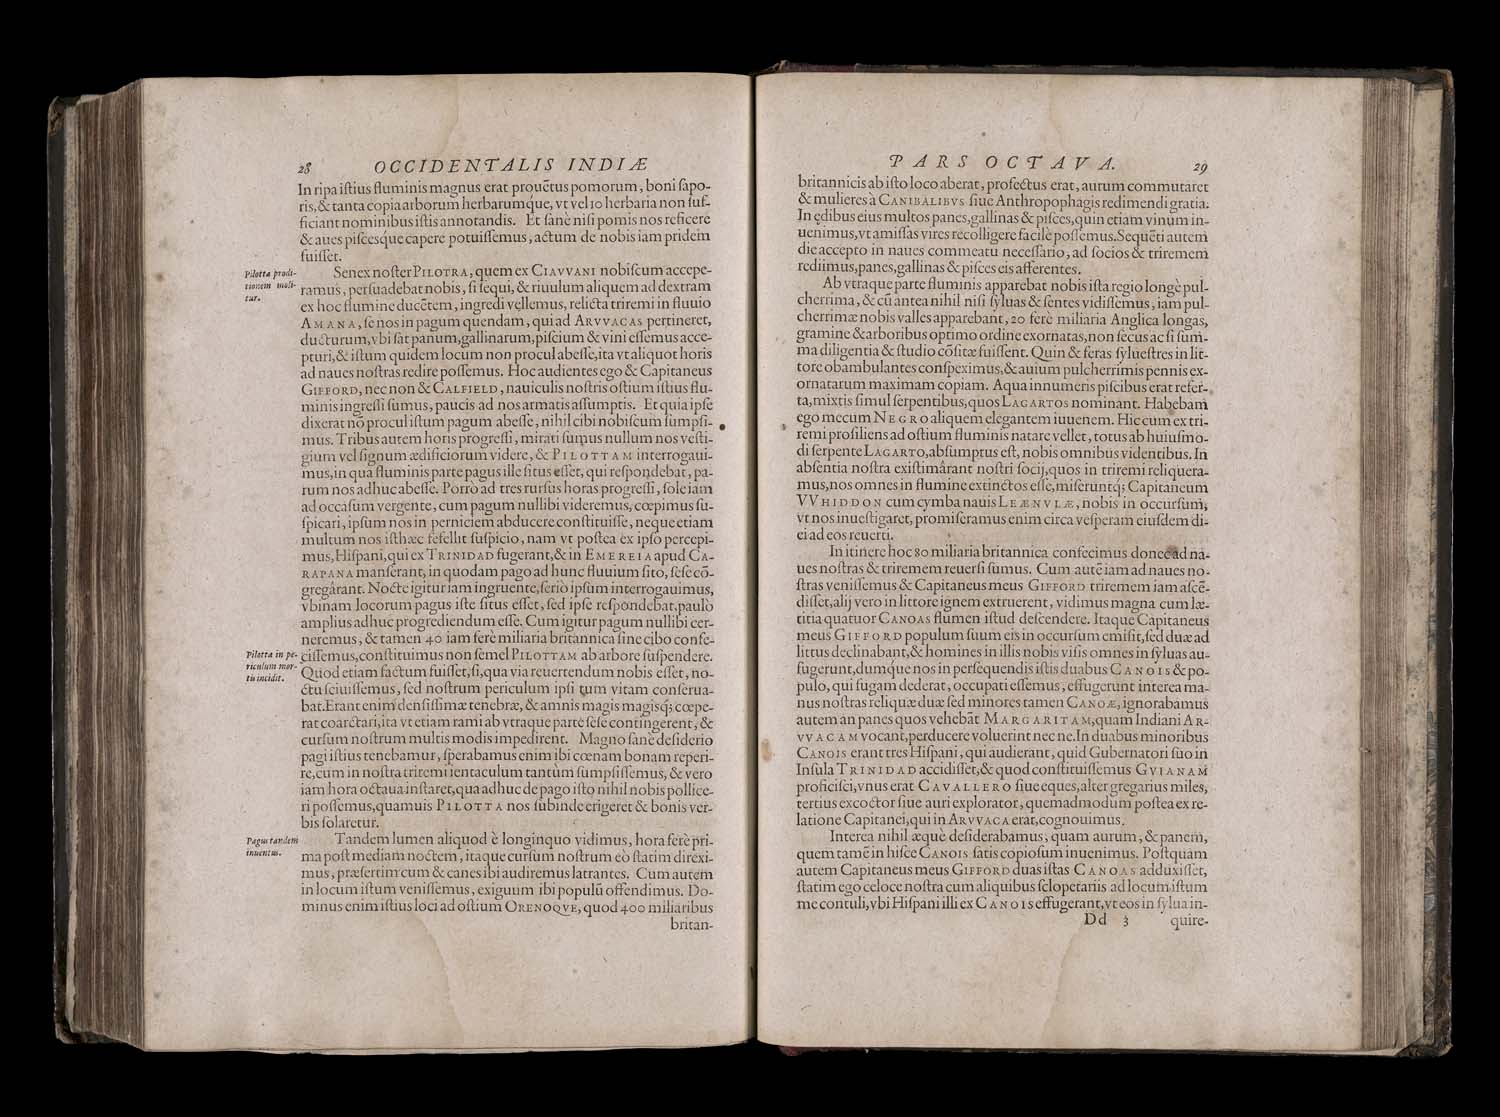 28 OCCIDENTALIS INDIÆ
In ripa iſtius fluminis magnus erat prouẽtus pomorum, boni ſapo-
ris, & tanta copia arborum herbarumque, vt vel 10 herbaria non ſuf-
ficiant nominibus iſtis annotandis. Et ſanè niſi pomis nos reficere
& aues piſcesq́ue capere potuiſſemus, actum de nobis iam pridem
fuiſſet.
Pilotta prodi-
tionem moli-
tur.
Senex noſter PILOTRA, quem ex CIAVVANI nobiſcum accepe-
ramus, perſuadebat nobis, ſi ſequi, & riuulum aliquem ad dextram
ex hoc flumine ducẽtem, ingredi vellemus, relicta triremi in fluuio
AMANA, ſe nos in pagum quendam, qui ad ARVVACAS pertineret,
ducturum, vbi ſat panum, gallinarum, piſcium & vini eſſemus acce-
pturi, & iſtum quidem locum non procul abeſſe, ita vt aliquot horis
ad naues noſtras redire poſſemus. Hoc audientes ego & Capitaneus
GIFFORD, nec non & CALFIELD, nauiculis noſtris oſtium iſtius flu-
minis ingreſſi ſumus, paucis ad nos armatis aſſumptis. Et quia ipſe
dixerat nõ procul iſtum pagum abeſſe, nihil cibi nobiſcum ſumpſi-
mus. Tribus autem horis progreſſi, mirati ſumus nullum nos veſti-
gium vel ſignum ædificiorum videre, & PILOTTAM interrogaui-
mus, in qua fluminis parte pagus ille ſitus eſſet, qui reſpondebat, pa-
rum nos adhuc abeſſe. Porrò ad tres rurſus horas progreſſi, ſole iam
ad occaſum vergente, cum pagum nullibi videremus, cœpimus ſu-
ſpicari, ipſum nos in perniciem abducere conſtituiſſe, neque etiam
multum nos iſthæc fefellit ſuſpicio, nam vt poſtea ex ipſo percepi-
mus, Hiſpani, qui ex TRINIDAD fugerant, & in EMEREIA apud CA-
RAPANA manſerant, in quodam pago ad hunc fluuium ſito, ſeſe cõ-
gregârant. Nocte igitur iam ingruente, ſerio ipſum interrogauimus,
vbinam locorum pagus iſte ſitus eſſet, ſed ipſe reſpondebat, paulò
amplius adhuc progrediendum eſſe. Cum igitur pagum nullibi cer-
neremus, & tamen 40 iam ferè miliaria britannica ſine cibo confe-
Pilotta in pe-
riculum mor-
tis incidit.
ciſſemus, conſtituimus non ſemel PILOTTAM ab arbore ſuſpendere.
Quod etiam factum fuiſſet, ſi, qua via reuertendum nobis eſſet, no-
ctu ſciuiſſemus, ſed noſtrum periculum ipſi tum vitam conſerua-
bat. Erant enim denſiſſimæ tenebræ, & amnis magis magisq́; cœpe-
rat coarctari, ita vt etiam rami ab vtraque parte ſeſe contingerent, &
curſum noſtrum multis modis impedirent. Magno ſanè deſiderio
pagi iſtius tenebamur, ſperabamus enim ibi cœnam bonam reperi-
re, cum in noſtra triremi ientaculum tantùm ſumpſiſſemus, & vero
iam hora octaua inſtaret, qua adhuc de pago iſto nihil nobis pollice-
ri poſſemus, quamuis PILOTTA nos ſubinde erigeret & bonis ver-
bis ſolaretur.
Pagus tandem
inuentus.
Tandem lumen aliquod è longinquo vidimus, hora ferè pri-
ma poſt mediam noctem, itaque curſum noſtrum eò ſtatim direxi-
mus, præſertim cum & canes ibi audiremus latrantes. Cum autem
in locum iſtum veniſſemus, exiguum ibi populũ offendimus. Do-
minus enim iſtius loci ad oſtium ORENOQVE, quod 400 miliaribus
britan-
PARS OCTAVA. 29
britannicis ab iſto loco aberat, profectus erat, aurum commutaret
& mulieres à CANIBALIBVS ſiue Anthropophagis redimendi gratia.
In ędibus eius multos panes, gallinas & piſces, quin etiam vinum in-
uenimus, vt amiſſas vires recolligere facilè poſſemus. Sequẽti autem
die accepto in naues commeatu neceſſario, ad ſocios & triremem
rediimus, panes, gallinas & piſces eis afferentes.
Ab vtraque parte fluminis apparebat nobis iſta regio longè pul-
cherrima, & cũ antea nihil niſi ſyluas & ſentes vidiſſemus, iam pul-
cherrimæ nobis valles apparebant, 20 ferè miliaria Anglica longas,
gramine & arboribus optimo ordine exornatas, non ſecus ac ſi ſum-
ma diligentia & ſtudio cõſitæ fuiſſent. Quin & feras ſylueſtres in lit-
tore obambulantes conſpeximus, & auium pulcherrimis pennis ex-
ornatarum maximam copiam. Aqua innumeris piſcibus erat refer-
ta, mixtis ſimul ſerpentibus, quos LAGARTOS nominant. Habebam
ego mecum NEGRO aliquem elegantem iuuenem. Hic cum ex tri-
remi proſiliens ad oſtium fluminis natare vellet, totus ab huiuſmo-
di ſerpente LAGARTO, abſumptus eſt, nobis omnibus videntibus. In
abſentia noſtra exiſtimârant noſtri ſocij, quos in triremi reliquera-
mus, nos omnes in flumine extinctos eſſe, miſeruntq́; Capitaneum
VVHIDDON cum cymba nauis LEÆNVLÆ, nobis in occurſum,
vt nos inueſtigaret, promiſeramus enim circa veſperam eiuſdem di-
ei ad eos reuerti.
In itinere hoc 80 miliaria britannica confecimus donec ad na-
ues noſtras & triremem reuerſi ſumus. Cum autẽ iam ad naues no-
ſtras veniſſemus & Capitaneus meus GIFFORD triremem iam aſcẽ-
diſſet, alij vero in littore ignem extruerent, vidimus magna cum læ-
titia quatuor CANOAS flumen iſtud deſcendere. Itaque Capitaneus
meus GIFFORD populum ſuum eis in occurſum emiſit, ſed duæ ad
littus declinabant, & homines in illis nobis viſis omnes in ſyluas au-
fugerunt, dumq́ue nos in perſequendis iſtis duabus CANOIS & po-
pulo, qui fugam dederat, occupati eſſemus, effugerunt interea ma-
nus noſtras reliquæ duæ ſed minores tamen CANOÆ, ignorabamus
autem an panes quos vehebãt MARGARITAM, quam Indiani AR-
VVACAM vocant, perducere voluerint nec ne. In duabus minoribus
CANOIS erant tres Hiſpani, qui audierant, quid Gubernatori ſuo in
Inſula TRINIDAD accidiſſet, & quod conſtituiſſemus GVIANAM
proficiſci, vnus erat CAVALLERO ſiue eques, alter gregarius miles,
tertius excoctor ſiue auri explorator, quemadmodum poſtea ex re-
latione Capitanei, qui in ARVVACA erat, cognouimus.
Interea nihil æquè deſiderabamus, quam aurum, & panem,
quem tamẽ in hiſce CANOIS ſatis copioſum inuenimus. Poſtquam
autem Capitaneus meus GIFFORD duas iſtas CANOAS adduxiſſet,
ſtatim ego celoce noſtra cum aliquibus ſclopetariis ad locum iſtum
me contuli, vbi Hiſpani illi ex CANOIS effugerant, vt eos in ſylua in-
Dd 3 quire-